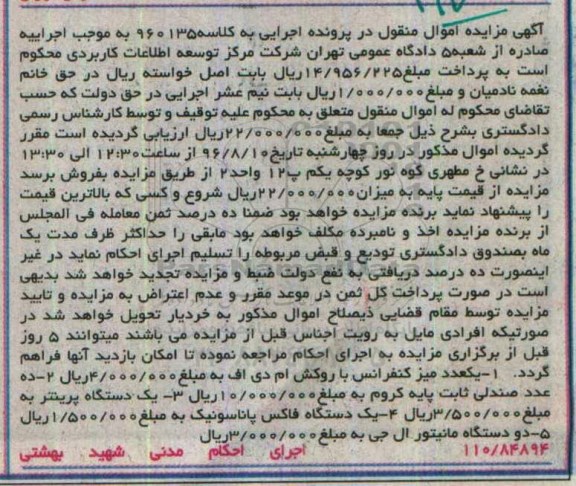 آگهی مزایده اموال منقول در پرونده اجرایی به کلاسه۹۶۰۱۳۵ به موجب اجراییه
صادره از شعبه۵ دادگاه عمومی تهران شرکت مرکز توسعه اطلاعات کاربردی محکوم
است به پرداخت مبلغ۱۴/۹۵۶/۲۲۵ریال بابت اصل خواسته ریال در حق خانم
نغمه نادمیان و مبلغ۱/۰۰۰/۰۰۰ریال بابت نیم عشر اجرایی در حق دولت که حسب
تقاضای محکوم له اموال منقول متعلق به محکوم علیه توقیف و توسط کارشناس رسمی
دادگستری بشرح ذیل جمعا به مبلغ۲۲/۰۰۰/۰۰۰ریال ارزیابی گردیده است مقرر
گردیده اموال مذکور در روز چهارشنبه تاریخ۹۶/۸/۱۰ از ساعت۱۲:۳۰ الی ۱۳:۳۰
در نشانی خ مطهری گوه نور کوچه یکم پ۱۲ واحد۲ از طریق مزایده بفروش برسد
مزایده از قیمت پایه به میزان۲۲/۰۰۰/۰۰۰ریال شروع و کسی که بالاترین قیمت
را پیشنهاد نماید برنده مزایده خواهد بود ضمنا ده درصد ثمن معامله فی المجلس
از برنده مزایده اخذ و نامبرده مکلف خواهد بود مابقی را حداکثر ظرف مدت یک
ماه بصندوق دادگستری تودیع و قبض مربوطه را تسلیم اجرای احکام نماید در غیر
اینصورت ده درصد دریافتی به نفع دولت ضبط و مزایده تجدید خواهد شد بدیهی
است در صورت پرداخت کل ثمن در موعد مقرر و عدم اعتراض به مزایده و تایید
مزایده توسط مقام قضایی ذیصلاح اموال مذکور به خردیار تحویل خواهد شد در
صورتیکه افرادی مایل به رویت اجناس قبل از مزایده می باشند میتوانند ۵ روز
قبل از برگزاری مزایده به اجرای احکام مراجعه نموده تا امکان بازدید آنها فراهم
گردد. ۱-یکعدد میز کنفرانس با روکش ام دی اف به مبلغ۴/۰۰۰/۰۰۰ریال ۲-ده
عدد صندلی ثابت پایه کروم به مبلغ۱۰/۰۰۰/۰۰۰ریال ۳- یک دستگاه پرینتر به
مبلغ۳/۵۰۰/۰۰۰ریال ۴-یک دستگاه فاکس پاناسونیک به مبلغ۱/۵۰۰/۰۰۰ریال
۵-دو دستگاه مانیتور ال جی به مبلغ۳/۰۰۰/۰۰۰ریال
۱۱۰/۸۴۸۹۴ اجرای احکام مدنی شهید بهشتی